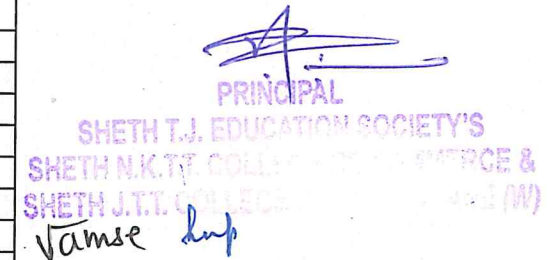 PRINCIPAL
SHETH T.J. EDUCATION SOCIETY'S
SHETH N.K.T.T. COLLEGE COMMERCE &
SHETH J.T.T. COLLEGE (W)
Vamse